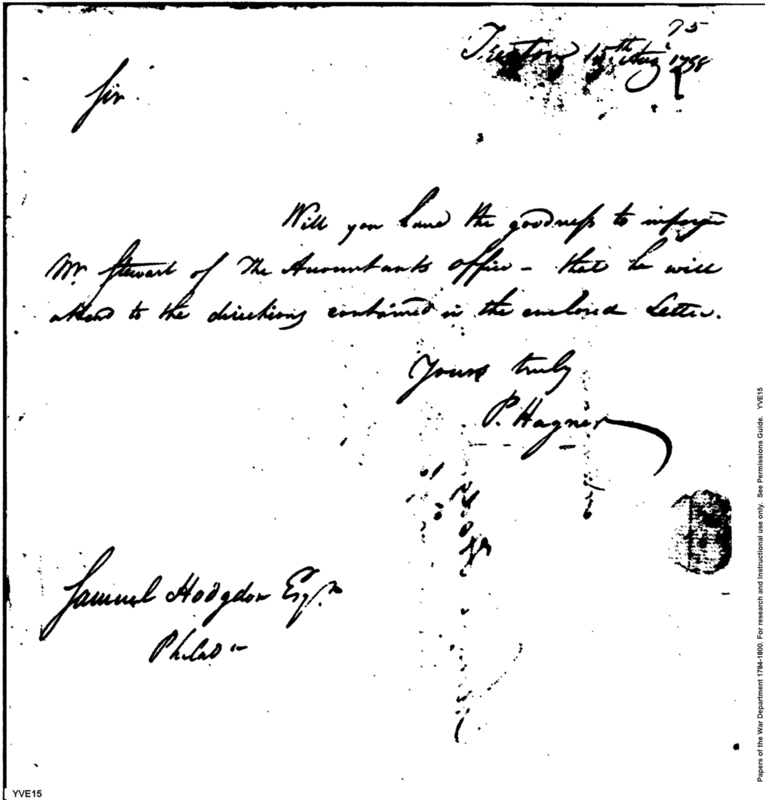 75
Trenton 15th Augt 1798
Sir
Will you have the goodness to inform
Mr. Stewart of the Accountants office - that he will
attend to the directions contained in the enclosed Letter.
Yours truly
P. Hagner
Samuel Hodgdon Esqr.
Philada
Papers of the War Department 1784-1800. For research and Instructional use only. See Permissions Guide. YVE15
YVE15